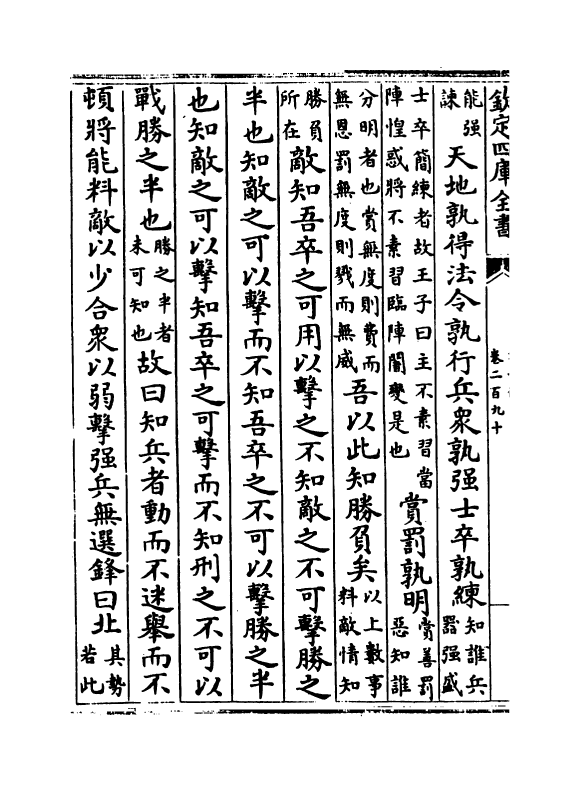 欽定四庫全書
卷二百九十
能强
諫
天地孰得法令孰行兵衆孰强士卒孰練
知誰兵
器强盛
士卒簡練者故王子曰主不素習當
陣惶惑將不素習臨陣闇變是也
賞罰孰明
賞善罰
惡知誰
分明者也賞無度則費而
無恩罰無度則戮而無威
吾以此知勝負矣
以上數事
料敵情知
勝負
所在
敵知吾卒之可用以擊之不知敵之不可擊勝之
半也知敵之可以擊而不知吾卒之不可以擊勝之半
也知敵之可以擊知吾卒之可擊而不知刑之不可以
戰勝之半也
勝之半者
未可知也
故曰知兵者動而不迷舉而不
頓將能料敵以少合衆以弱擊强兵無選鋒曰北
其勢
若此